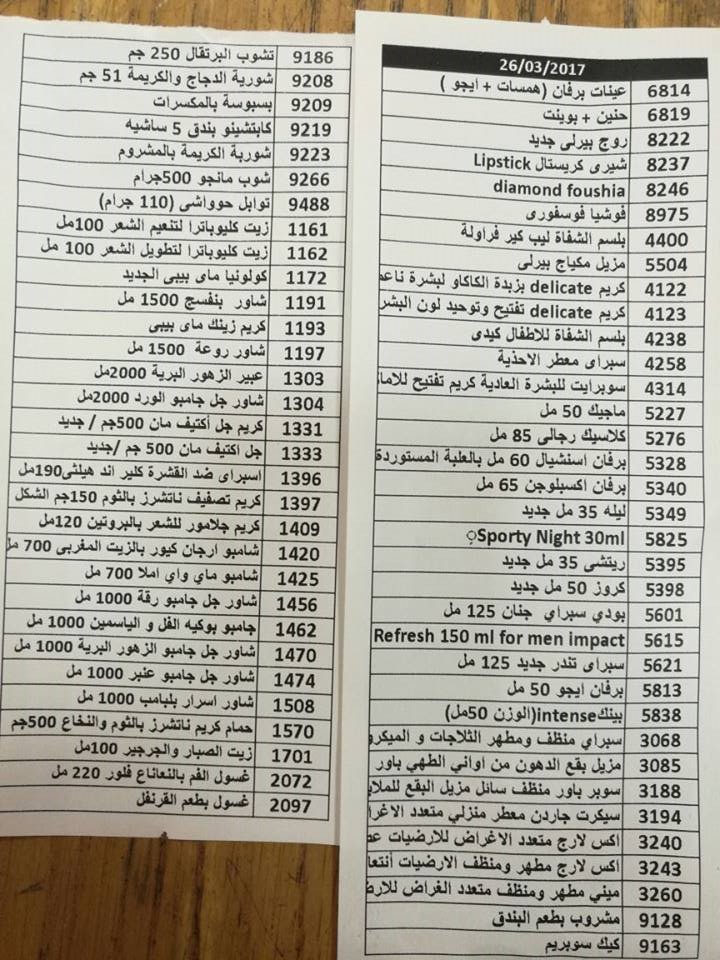 26/03/2017
6814 عينات برفان (همسات + ايجو )
6819 حنين + بوينت
8222 روج بيرلى جديد
8237 شيرى كريستال Lipstick
8246 diamond foushia
8975 فوشيا فوسفورى
4400 بلسم الشفاة ليب كير فراولة
5504 مزيل مكياج بيرلى
4122 كريم delicate بزبدة الكاكاو لبشرة ناعم
4123 كريم delicate تفتيح وتوحيد لون البشر
4238 بلسم الشفاة للاطفال كيدى
4258 سبراى معطر الاحذية
4314 سوبرايت للبشرة العادية كريم تفتيح للاما
5227 ماجيك 50 مل
5276 كلاسيك رجالى 85 مل
5328 برفان اسنشيال 60 مل بالعلبة المستوردة
5340 برفان اكسبلوجن 65 مل
5349 ليله 35 مل جديد
5825 Sporty Night 30ml
5395 ريتشى 35 مل جديد
5398 كروز 50 مل جديد
5601 بودي سبراي جنان 125 مل
5615 Refresh 150 ml for men impact
5621 سبراى تندر جديد 125 مل
5813 برفان ايجو 50 مل
5838 بينك intense(الوزن 50مل)
3068 سبراي منظف ومطهر الثلاجات و الميكرو
3085 مزيل بقع الدهون من اواني الطهي باور
3188 سوبر باور منظف سائل مزيل البقع للملاب
3194 سيكرت جاردن معطر منزلي متعدد الاغرا
3240 اكس لارج متعدد الاغراض للارضيات عط
3243 اكس لارج مطهر ومنظف الارضيات أنتعا
3260 ميني مطهر ومنظف متعدد الغراض للارض
9128 مشروب بطعم البندق
9163 كيك سوبريم
9186 تشوب البرتقال 250 جم
9208 شوربة الدجاج والكريمة 51 جم
9209 بسبوسة بالمكسرات
9219 كابتشينو بندق 5 ساشيه
9223 شوربة الكريمة بالمشروم
9266 شوب مانجو 500جرام
9488 توابل حوواشى (110 جرام)
1161 زيت كليوباترا لتنعيم الشعر 100مل
1162 زيت كليوباترا لتطويل الشعر 100 مل
1172 كولونيا ماى بيبى الجديد
1191 شاور بنفسج 1500 مل
1193 كريم زينك ماى بيبى
1197 شاور روعة 1500 مل
1303 عبير الزهور البرية 2000مل
1304 شاور جل جامبو الورد 2000مل
1331 كريم جل أكتيف مان 500جم / جديد
1333 جل اكتيف مان 500 جم /جديد
1396 اسبراى ضد القشرة كلير اند هيلثى190مل
1397 كريم تصفيف ناتشرز بالثوم 150جم الشكل
1409 كريم جلامور للشعر بالبروتين 120مل
1420 شامبو ارجان كيور بالزيت المغربى 700 مل
1425 شامبو ماي واي املا 700 مل
1456 شاور جل جامبو رقة 1000 مل
1462 جامبو بوكيه الفل و الياسمين 1000 مل
1470 شاور جل جامبو الزهور البرية 1000 مل
1474 شاور جل جامبو عنبر 1000 مل
1508 شاور اسرار بلبامب 1000 مل
1570 حمام كريم ناتشرز بالثوم والنخاع 500جم
1701 زيت الصبار والجرجير 100مل
2072 غسول الفم بالنعاناع فلور 220 مل
2097 غسول بطعم القرنفل